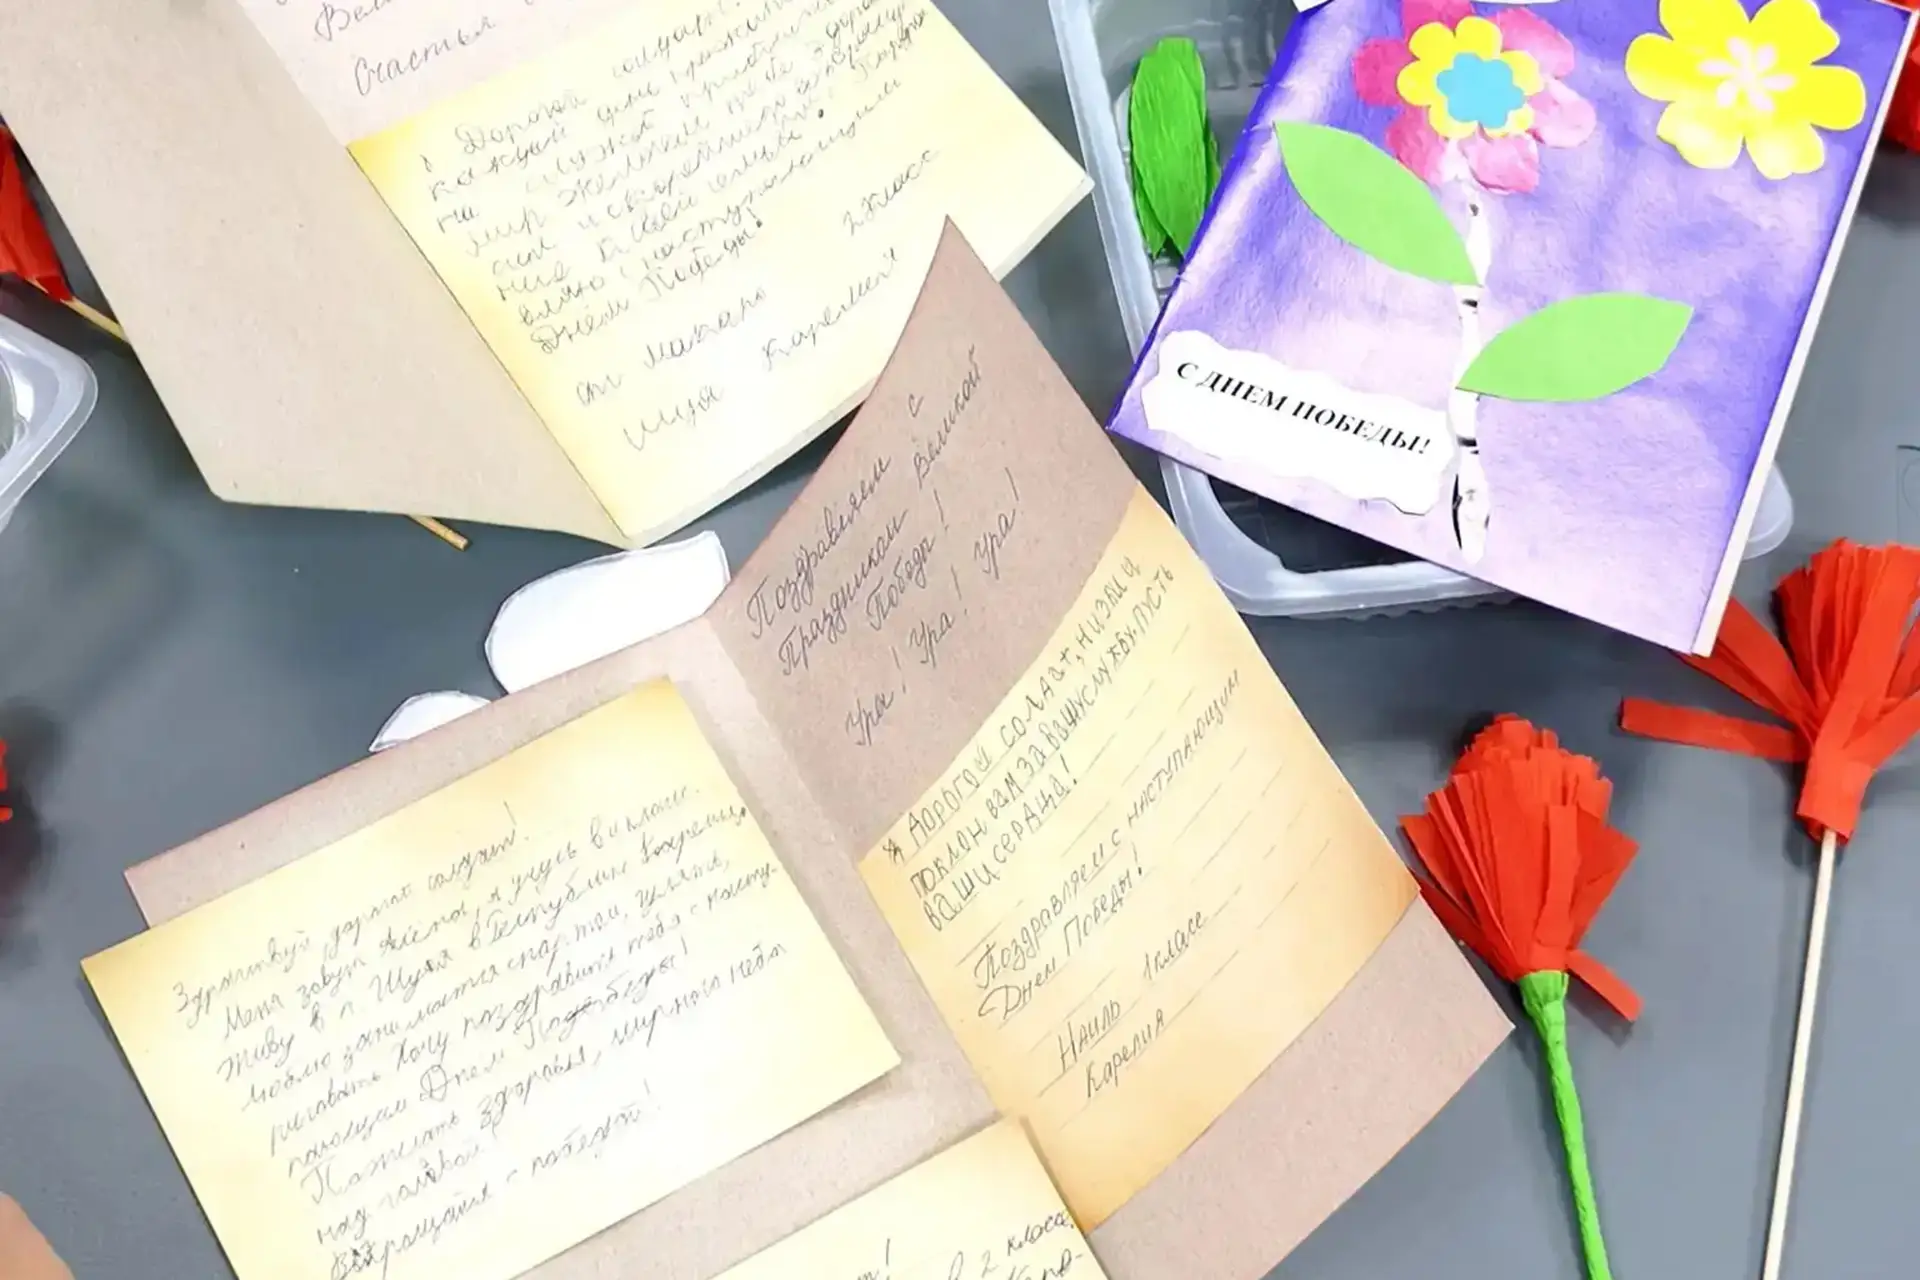 Счастья
Дорогой солдат!
каждый день
на службе
мир. Желаем тебе
ния и скорейшего
ния к своей семье.
вляю с наступающим
Днём Победы!
от Макара 2 класс
Шуя Карелия
С ДНЕМ ПОБЕДЫ!
Поздравляем с
Праздником Великой
Победы!
Ура! Ура! Ура!
Дорогой солдат, низкий
поклон вам за вашу службу. пусть
ваши сердца!
Поздравляем с наступающим
Днем Победы!
Наиль 1 класс
Карелия
Здравствуй дорогой солдат!
Меня зовут Алёна, я учусь в классе.
Живу в п. Шуя в Республике Карелии,
Люблю заниматься спортом, гулять,
рисовать. Хочу поздравить тебя с насту-
пающим Днем Победы!
Пожелать здоровья, мирного неба
над головой!
Возращайся с победой!
2 классе.